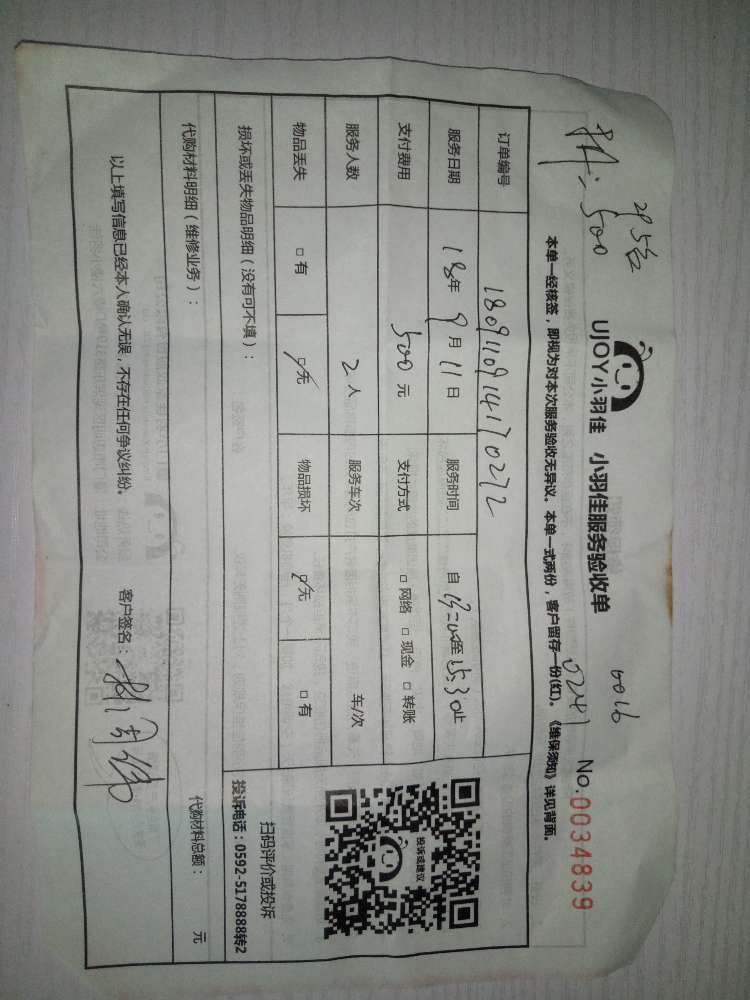 UJOY小羽佳 小羽佳服务验收单
No.0034839
500
0016
0241
本单一经核签，即视为对本次服务验收无异议。本单一式两份，客户留存一份(红)。《维保须知》详见背面。
订单编号 1809110914170272
服务日期 18年9月11日 服务时间 自 至15:30止
支付费用 500元 支付方式 □网络 □现金 □转账
服务人数 2人 服务车次 车/次
物品丢失 □有 □无 物品损坏 □无 □有
损坏或丢失物品明细（没有可不填）：
代购材料明细（维修业务）： 代购材料总额： 元
以上填写信息已经本人确认无误，不存在任何争议纠纷。 客户签名：
投诉或建议
扫码评价或投诉
投诉电话：0592-5178888转2